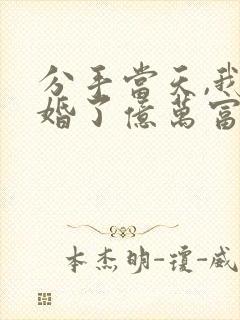 分手當天,我
婚了億萬富
本杰明-瓊-威